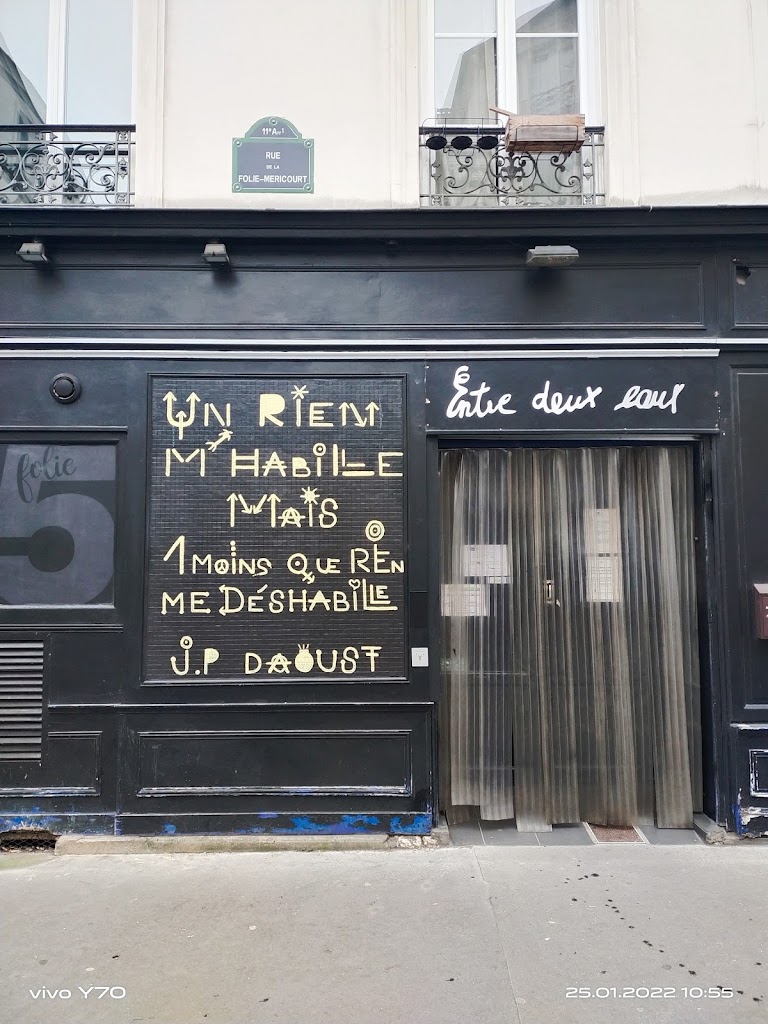 11e Arrt
RUE
DE LA
FOLIE-MERICOURT
Entre deux eaux
folie
5
UN RIEN
M'HABILLE
MAIS
1 MOINS QUE RIEN
ME DÉSHABILLE
J.P DAOUST
vivo Y70
25.01.2022 10:55